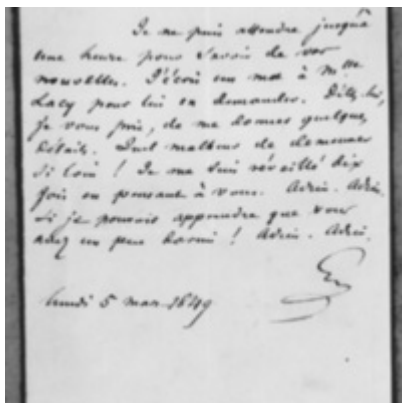 Je ne puis attendre jusqu'à
une heure pour savoir de vos
nouvelles. J'écris un mot à Mlle
Lacy pour lui en demander. Dites lui,
je vous prie, de me donner quelques
détails. Quel malheur de demeurer
si loin ! Je me suis réveillé dix
fois en pensant à vous. Adieu. Adieu.
Si je pouvais apprendre que vous
avez un peu dormi ! Adieu. Adieu.
lundi 5 mars 1849